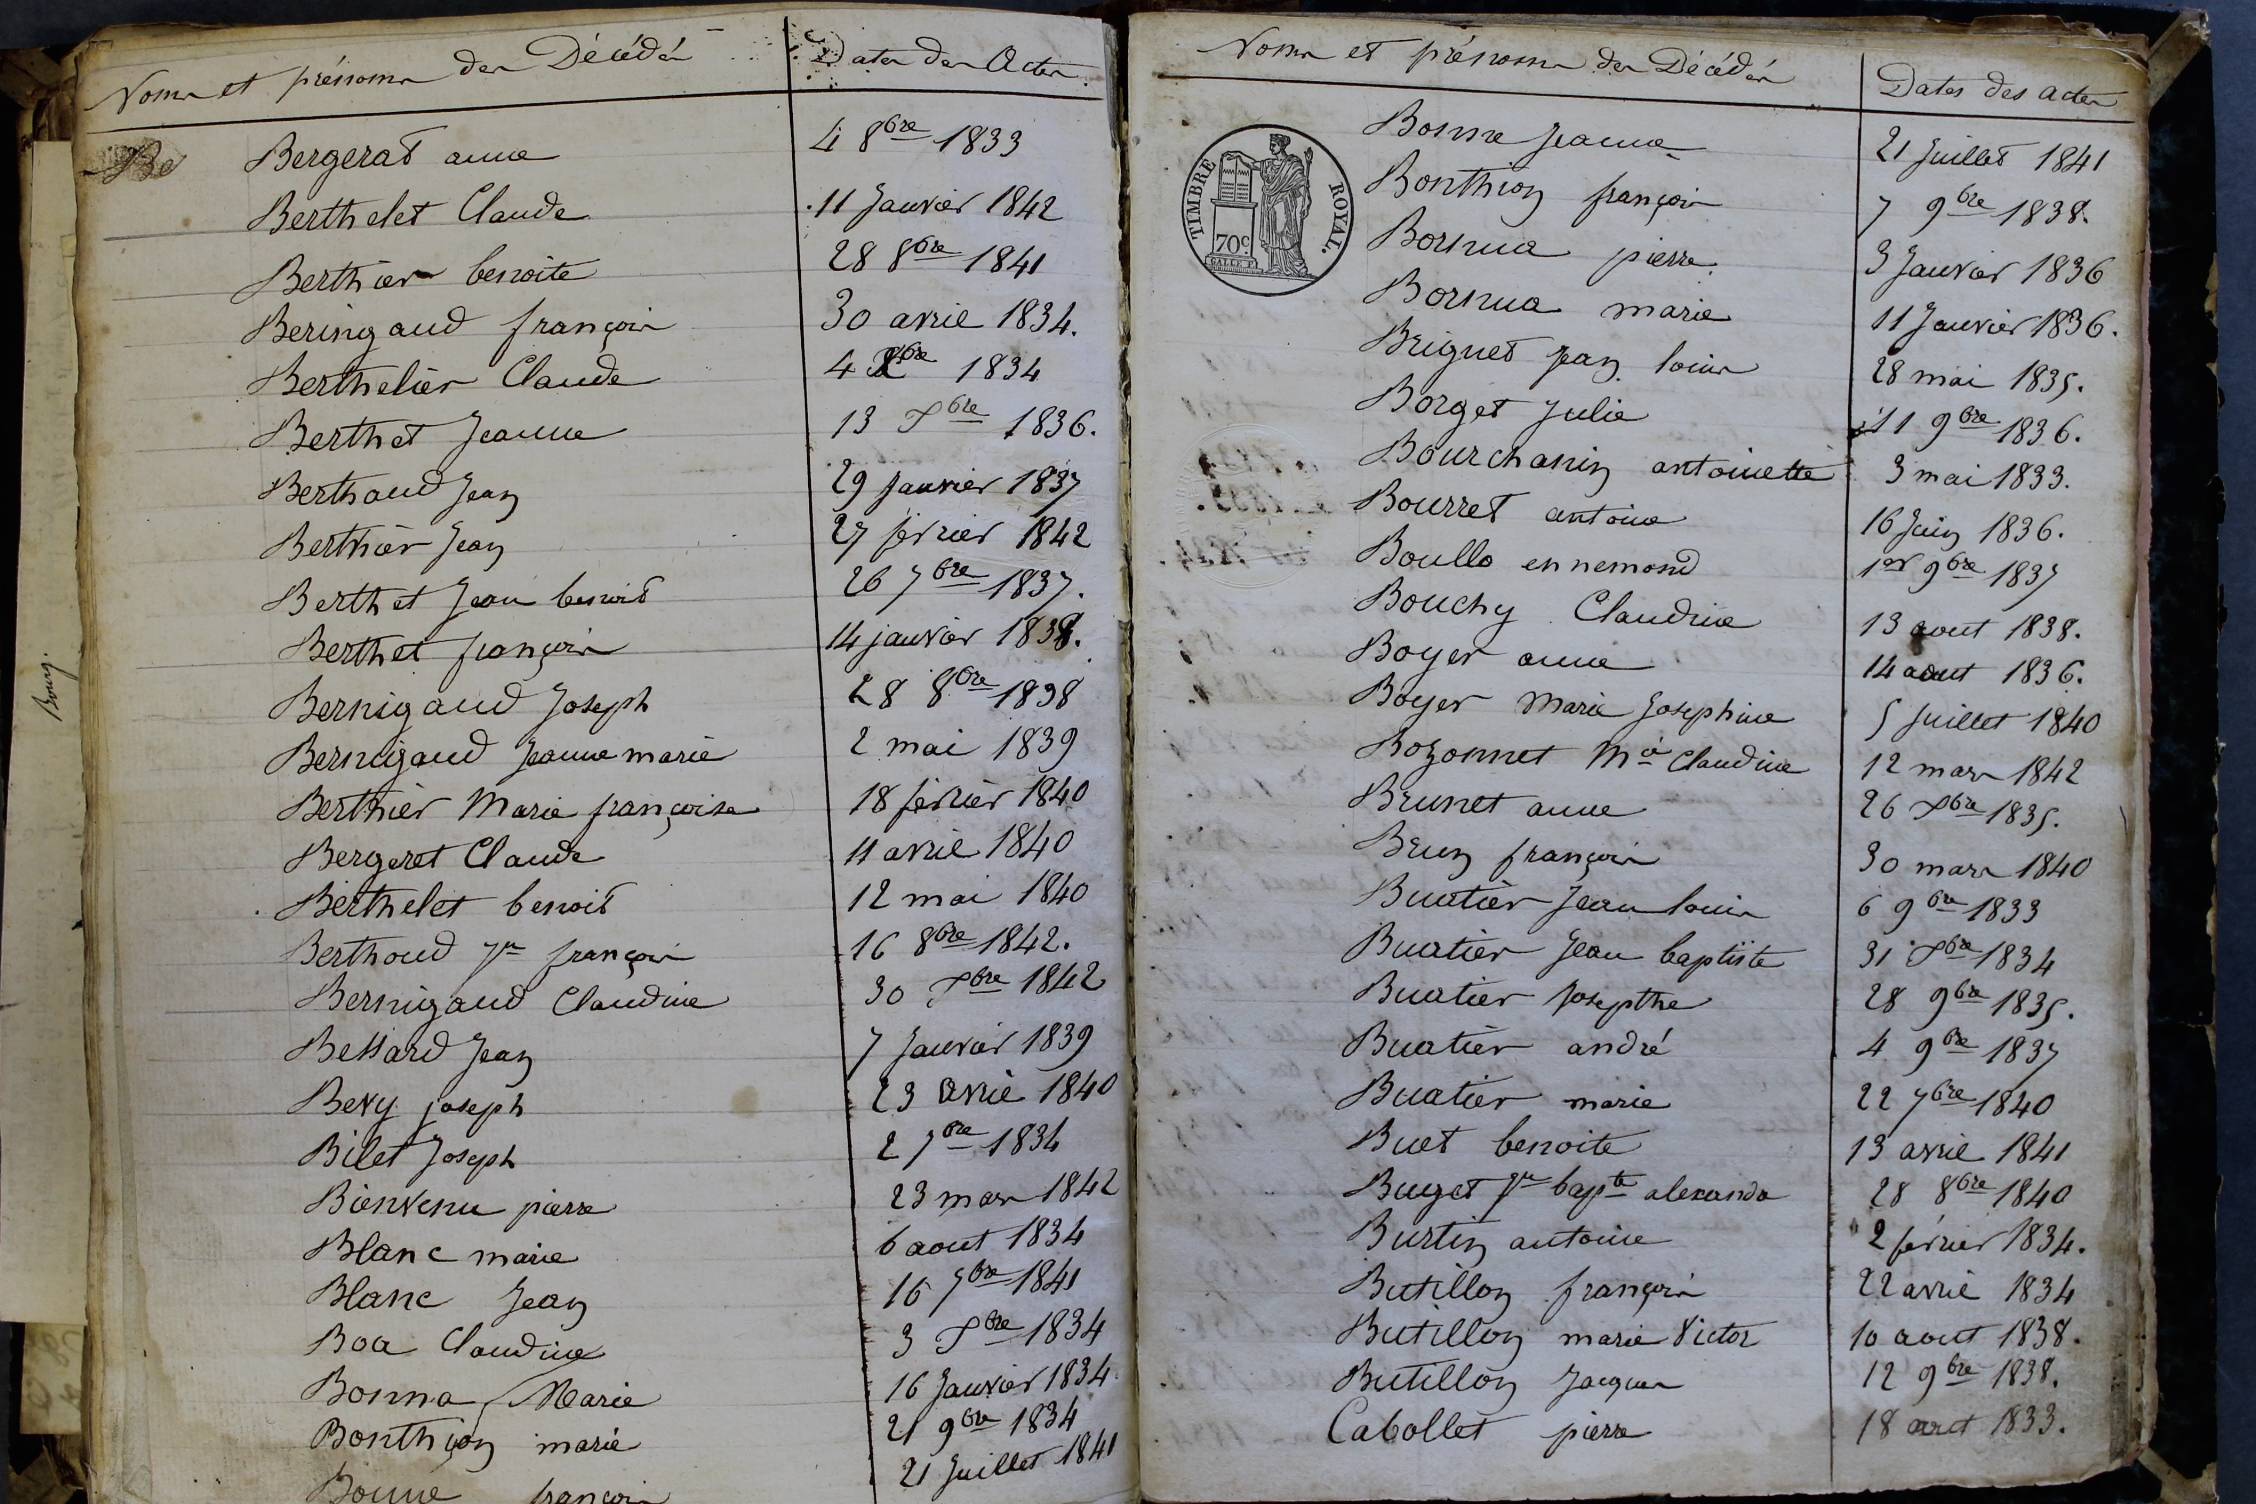 Noms et prénoms des Décédés Dates des Actes
Be Bergerat anne 4 8bre 1833
Berthelet Claude 11 Janvier 1842
Berthier benoite 28 8bre 1841
Beringaud françois 30 avril 1834.
Berthelier Claude 4 1834
Berthet Jeanne 13 Xbre 1836.
Berthaud Jean 29 Janvier 1837
Berthier Jean 27 février 1842
Berthet Jean benoit 26 7bre 1837.
Berthet françois 14 janvier 1838.
Bernigaud Joseph 28 8bre 1838
Bernigaud Jeanne marie 2 mai 1839
Berthier Marie françoise 18 février 1840
Bergeret Claude 11 avril 1840
Berthelet benoit 12 mai 1840
Berthoud Jn françois 16 8bre 1842.
Bernigaud Claudine 30 Xbre 1842
Bessard Jean 7 Janvier 1839
Bevy joseph 23 avril 1840
Bilet Joseph 2 7bre 1834
Bienvenu pierre 23 mars 1842
Blanc marie 6 aout 1834
Blanc Jean 16 7bre 1841
Boa Claudine 3 Xbre 1834
Bonna Marie 16 Janvier 1834
Bonthion marie 21 9bre 1834
Bonne françois 21 Juillet 1841
Bourg.
Noms et prénoms des Décédés Dates des actes
TIMBRE ROYAL.
70c
Bonne Jeanne 21 Juillet 1841
Bonthion françois 7 9bre 1838.
Bornua pierre 3 Janvier 1836
Bornua marie 11 Janvier 1836.
Briguet Jean louis 28 mai 1835.
Borget Julie 11 9bre 1836.
Bourchanin antoinette 3 mai 1833.
Bourret antoine 16 Juin 1836.
Boullo ennemond 1er 9bre 1837
Bouchy Claudine 13 aout 1838.
Boyer anne 14 aout 1836.
Boyer Marie Josephine 5 Juillet 1840
Bozonnet Mie Claudine 12 mars 1842
Brunet anne 26 Xbre 1835.
Brun françois 30 mars 1840
Buatier Jean louis 6 9bre 1833
Buatier Jean baptiste 31 Xbre 1834
Buatier Josepthe 28 9bre 1835.
Buatier andré 4 9bre 1837
Buatier marie 22 7bre 1840
Buet benoite 13 avril 1841
Buget Jn bapte alexandre 28 8bre 1840
Burtin antoine 2 février 1834.
Butillon françois 22 avril 1834
Butillon marie Victor 10 aout 1838.
Butillon Jacques 12 9bre 1838.
Cabollet pierre 18 1833.